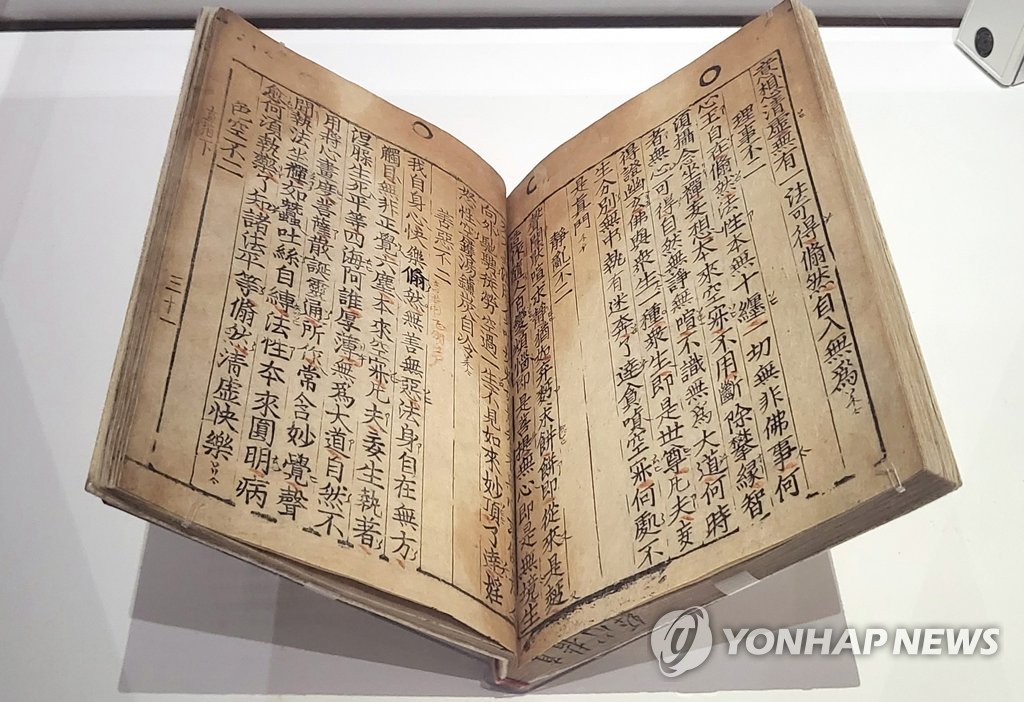 意想清虛無有一法可得翛然自入無爲
理事不二
心王自在翛然法性本無十纏一切無非佛事何
須攝念坐禪妄想本來空寂不用斷除攀緣智
者無心可得自然無諍無喧不識無爲大道何時
得證幽玄佛與衆生一種衆生即是世尊凡夫妄
生分別無中執有迷奔了達貪嗔空寂何處不
是眞門
靜亂不二
聲聞厭喧求靜猶如弃麪求餅餅即從來是麪
人百變煩惱即是菩提無心即是無境生
向外馳騁從勞空過一生不見如來妙頂了達婬
怒性空鑊湯爐炭自冷
善惡不二
我自身心快樂翛然無善無惡法身自在無方
觸目無非正覺六塵本來空寂凡夫妄生執著
涅槃生死平等四海阿誰厚薄無爲大道自然不
用將心畫度菩薩散誕靈通所常含妙覺聲
聞執法坐禪如蠶吐絲自縛法性本來圓明病
愈何須執藥了知諸法平等翛然清虛快樂
色空不二
下
三十一
YONHAP NEWS